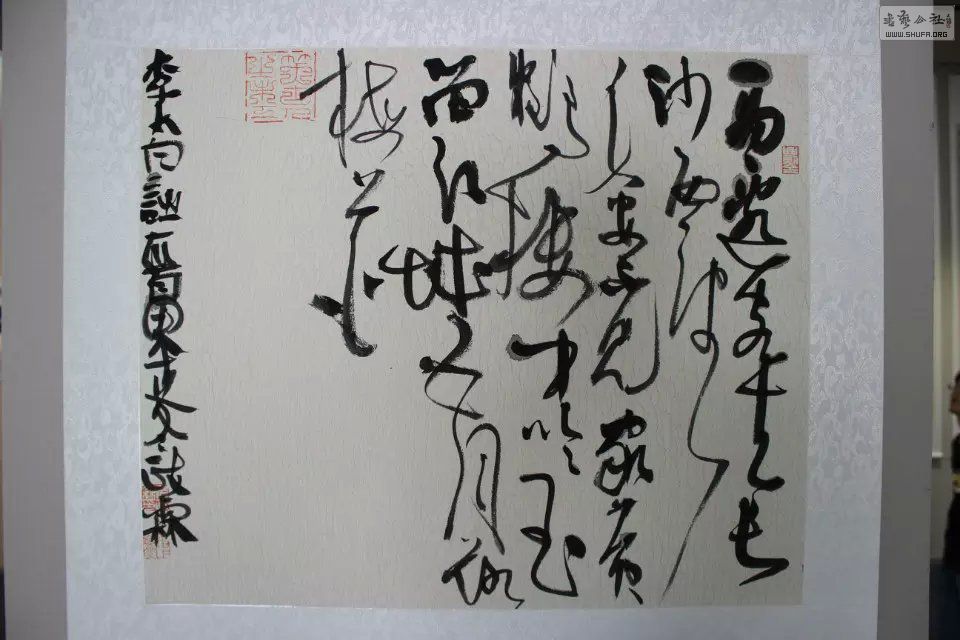 一為遷客去長
沙西望
長安不見家黃
鶴樓中吹玉
笛江城五月落
梅花
李太白詩
書藝公社
WWW.SHUFA.ORG